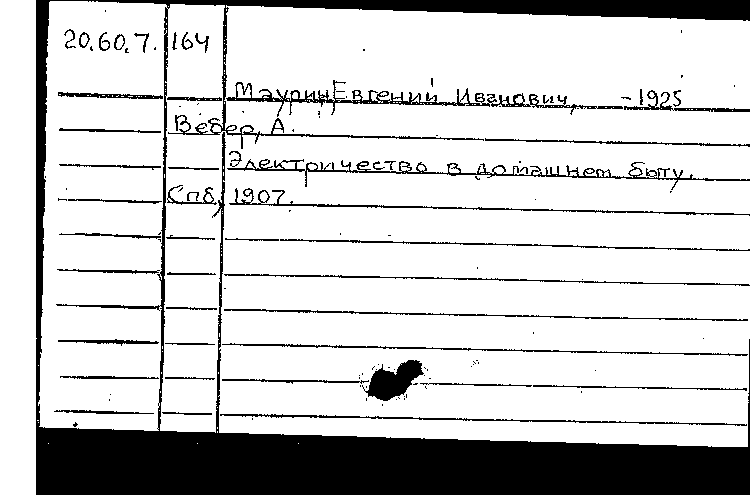 20.60.7. 164
Маурин, Евгений Иванович, -1925
Вебер, А.
Электричество в домашнем быту.
Спб, 1907.